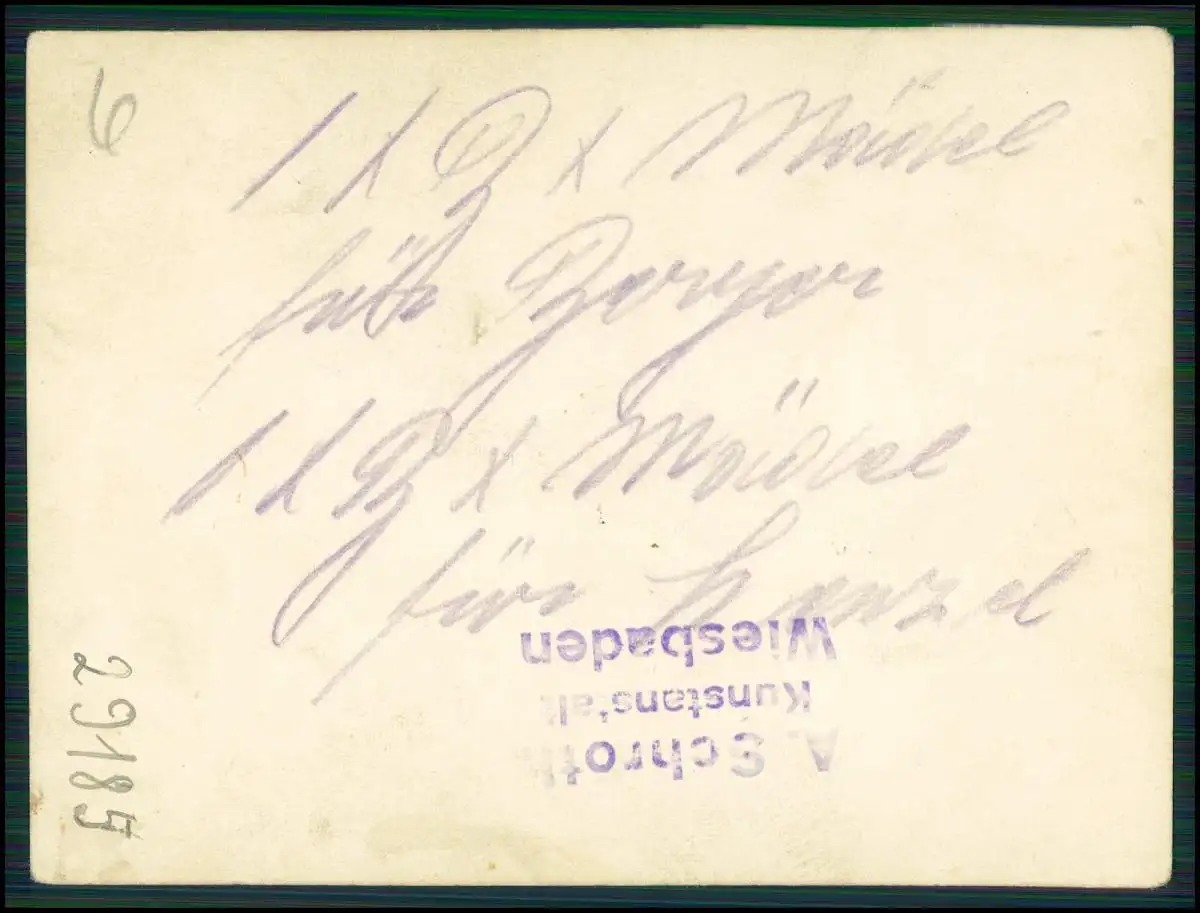 6
1 x P x Mädel
für Berger
1 x P x Mädel
für
A. Schroth
Kunstanstalt
Wiesbaden
29185